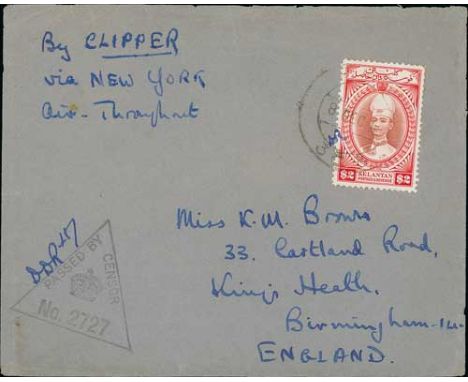 By CLIPPER
via NEW YORK
Air - Throughout
$2
KELANTAN
$2
PASSED BY
CENSOR
No. 2727
Miss K.M. Brown
33, Cartland Road,
King's Heath,
Birmingham-14-
ENGLAND.